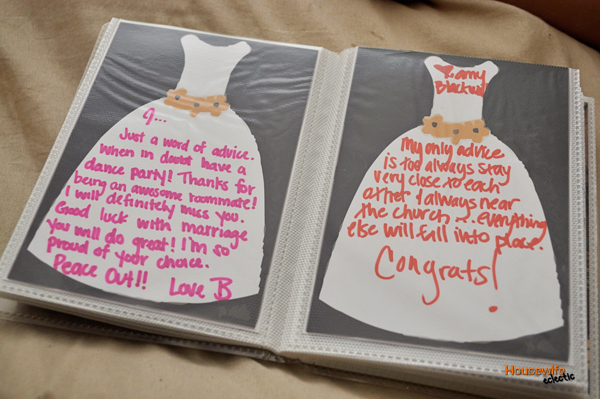 J...
Just a word of advice.
when in doubt have a
dance party! Thanks for
being an awesome roommate!
I will definitely miss you.
Good luck with marriage
you will do great! I'm so
proud of your choice.
Peace Out!! Love B
amy
My only advice
is too always stay
very close to each
other & always near
the church ... everything
else will fall into place.
Congrats!
Housewife
eclectic